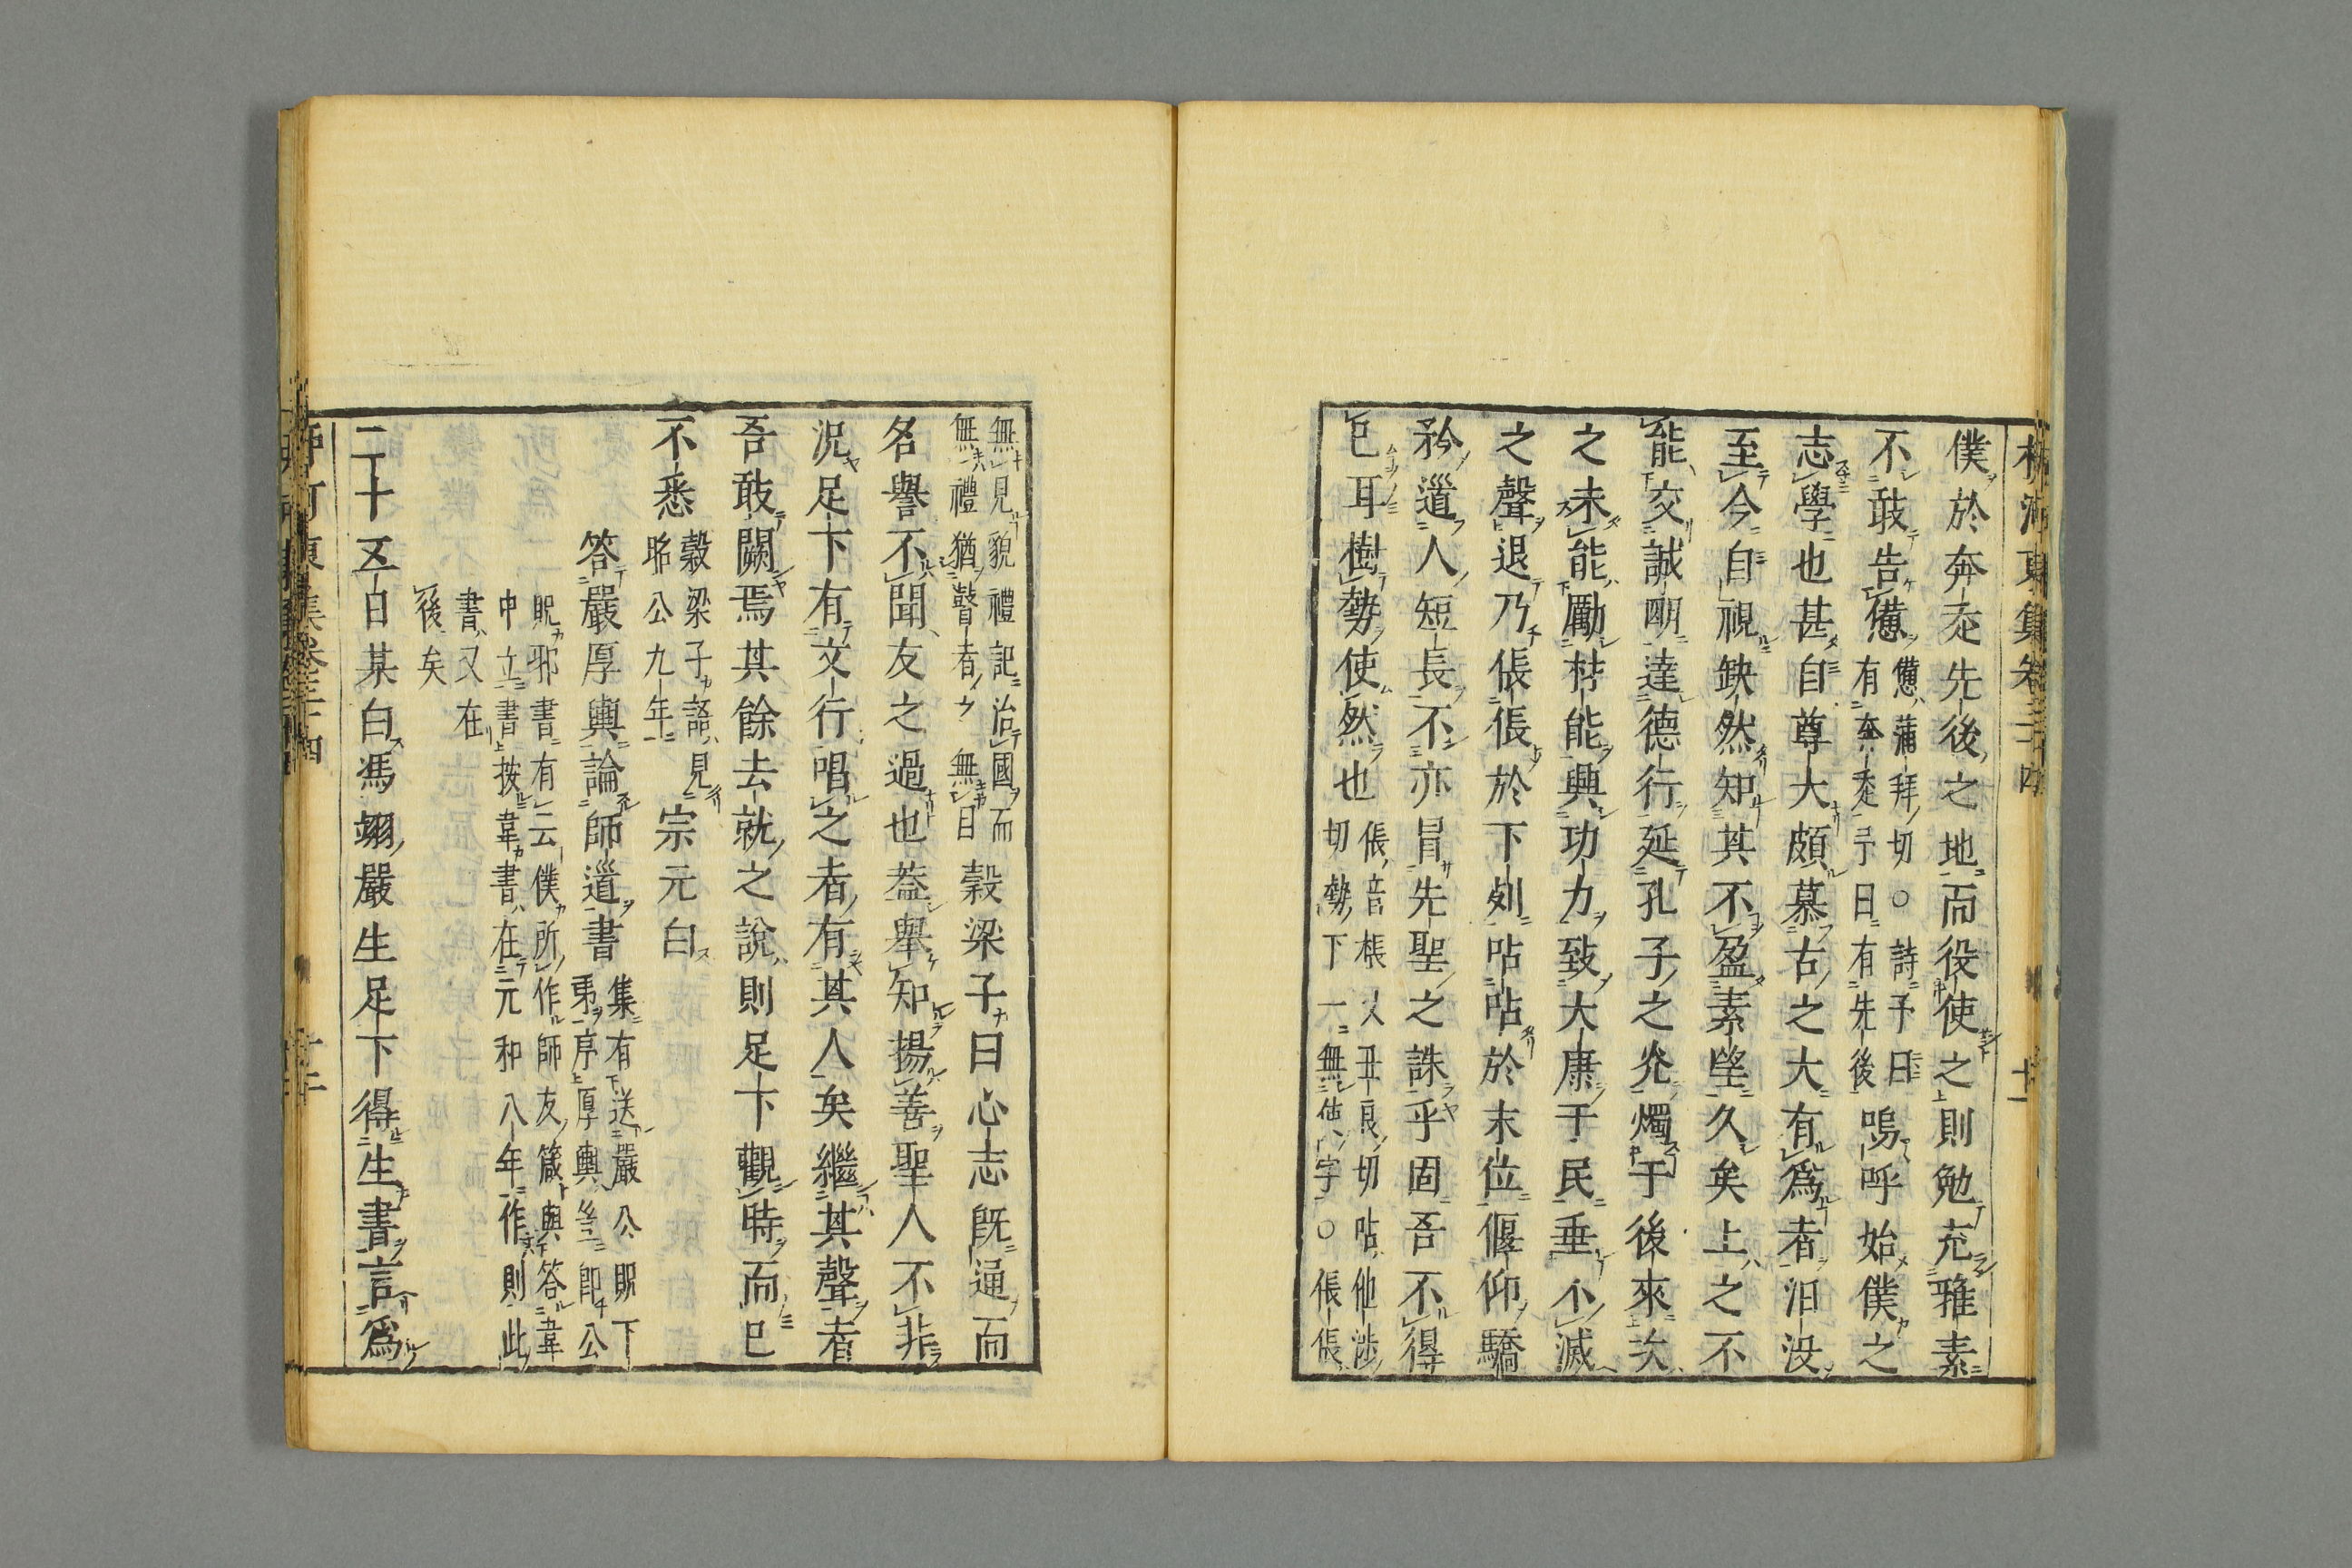 柳河東集卷三十四 十一
僕於奔走先後之地而役使之則勉充雅素
不敢告憊
憊蒲拜切○詩予曰
有奔走予曰有先後
嗚呼始僕之
志學也甚自尊大頗慕古之大有爲者汨没
至今自視缺然知其不盈素望久矣上之不
能交誠明達德行延孔子之光燭于後來次
之未能勵材能興功力致大康于民垂不滅
之聲退乃倀倀於下列呫呫於末位偃仰驕
矜道人短長不亦冒先聖之誅乎固吾不得
已耳樹勢使然也
倀音棖又丑良切呫他涉
切勢下一無使字○倀倀
無見貌禮記治國而
無禮猶瞽者之無目
穀梁子曰心志既通而
名譽不聞友之過也葢舉知揚善聖人不非
況足下有文行唱之者有其人矣繼其聲者
吾敢闕焉其餘去就之說則足下觀時而已
不悉
穀梁子語見
昭公九年
宗元白
答嚴厚輿論師道書
集有送嚴公貺下
第序厚輿豈即公
貺邪書有云僕所作師友箴與答韋
中立書按韋書在元和八年作則此
書又在
後矣
二十五日某白馮翊嚴生足下得生書言爲
柳河東集卷三十四 十二